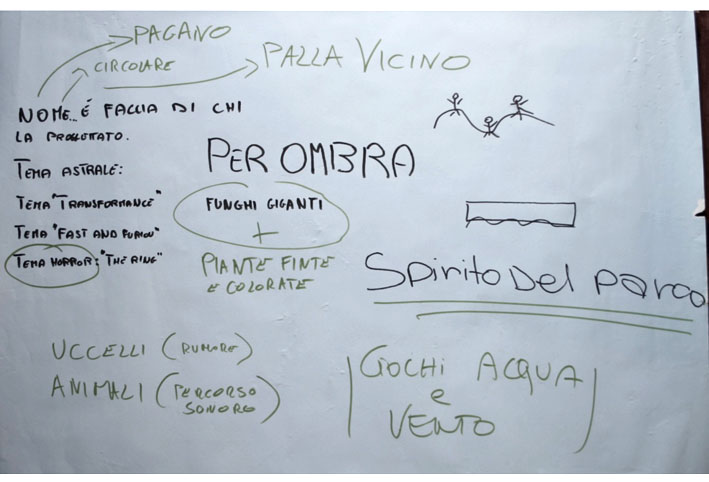 PAGANO
CIRCOLARE
PALLA VICINO
NOME... É FACCIA DI CHI
LA PROGETTATO.
TEMA ASTRALE:
TEMA "TRANSFORMANCE"
TEMA "FAST AND FURIOU"
TEMA HORROR: "THE RING"
PER OMBRA
FUNGHI GIGANTI
+
PIANTE FINTE
E COLORATE
Spirito Del parco
UCCELLI (RUMORE)
ANIMALI (PERCORSO
SONORO)
GIOCHI ACQUA
e
VENTO